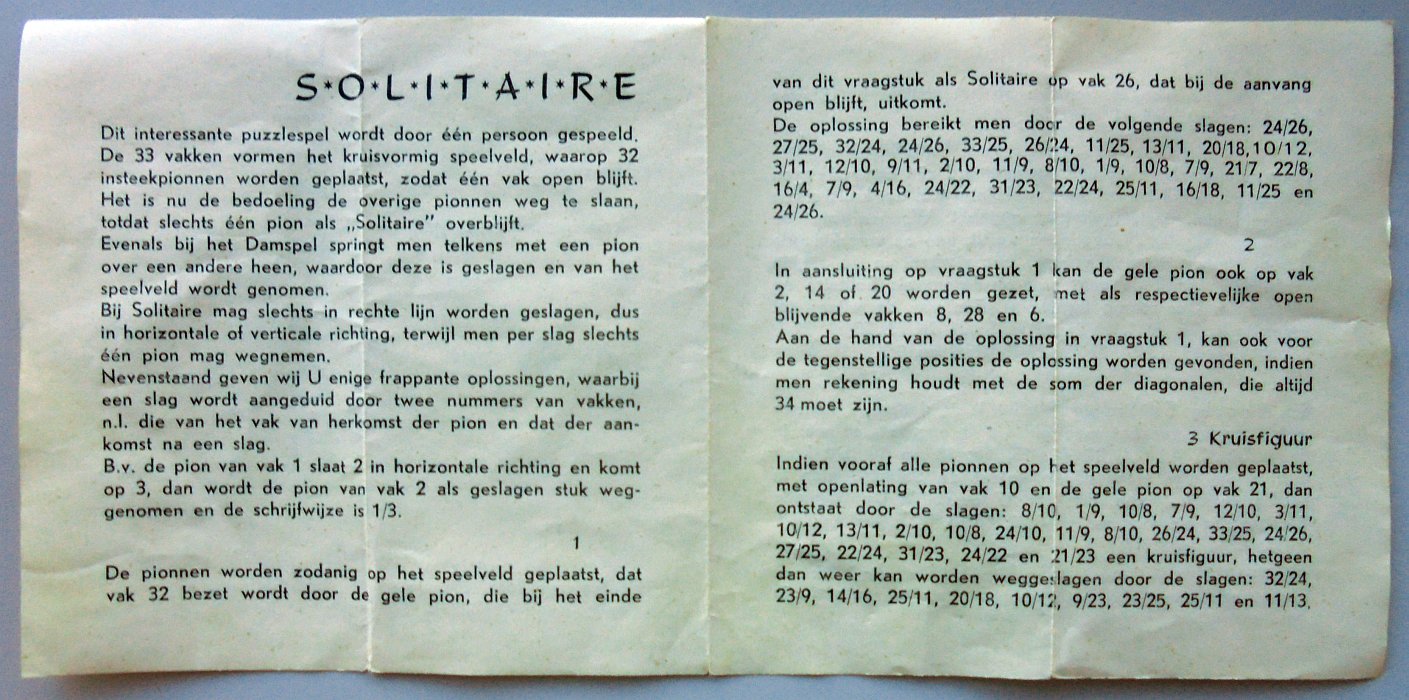 S*O*L*I*T*A*I*R*E
Dit interessante puzzlespel wordt door één persoon gespeeld.
De 33 vakken vormen het kruisvormig speelveld, waarop 32
insteekpionnen worden geplaatst, zodat één vak open blijft.
Het is nu de bedoeling de overige pionnen weg te slaan,
totdat slechts één pion als „Solitaire" overblijft.
Evenals bij het Damspel springt men telkens met een pion
over een andere heen, waardoor deze is geslagen en van het
speelveld wordt genomen.
Bij Solitaire mag slechts in rechte lijn worden geslagen, dus
in horizontale of verticale richting, terwijl men per slag slechts
één pion mag wegnemen.
Nevenstaand geven wij U enige frappante oplossingen, waarbij
een slag wordt aangeduid door twee nummers van vakken,
n.l. die van het vak van herkomst der pion en dat der aan-
komst na een slag.
B.v. de pion van vak 1 slaat 2 in horizontale richting en komt
op 3, dan wordt de pion van vak 2 als geslagen stuk weg-
genomen en de schrijfwijze is 1/3.
1
De pionnen worden zodanig op het speelveld geplaatst, dat
vak 32 bezet wordt door de gele pion, die bij het einde
van dit vraagstuk als Solitaire op vak 26, dat bij de aanvang
open blijft, uitkomt.
De oplossing bereikt men door de volgende slagen: 24/26,
27/25, 32/24, 24/26, 33/25, 26/24, 11/25, 13/11, 20/18, 10/12,
3/11, 12/10, 9/11, 2/10, 11/9, 8/10, 1/9, 10/8, 7/9, 21/7, 22/8,
16/4, 7/9, 4/16, 24/22, 31/23, 22/24, 25/11, 16/18, 11/25 en
24/26.
2
In aansluiting op vraagstuk 1 kan de gele pion ook op vak
2, 14 of 20 worden gezet, met als respectievelijke open
blijvende vakken 8, 28 en 6.
Aan de hand van de oplossing in vraagstuk 1, kan ook voor
de tegenstellige posities de oplossing worden gevonden, indien
men rekening houdt met de som der diagonalen, die altijd
34 moet zijn.
3 Kruisfiguur
Indien vooraf alle pionnen op het speelveld worden geplaatst,
met openlating van vak 10 en de gele pion op vak 21, dan
ontstaat door de slagen: 8/10, 1/9, 10/8, 7/9, 12/10, 3/11,
10/12, 13/11, 2/10, 10/8, 24/10, 11/9, 8/10, 26/24, 33/25, 24/26,
27/25, 22/24, 31/23, 24/22 en 21/23 een kruisfiguur, hetgeen
dan weer kan worden weggeslagen door de slagen: 32/24,
23/9, 14/16, 25/11, 20/18, 10/12, 9/23, 23/25, 25/11 en 11/13.